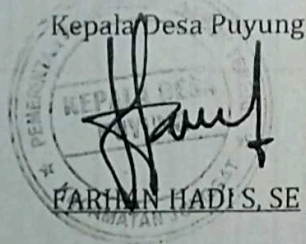 Kepala Desa Puyung
KEPALA DESA
FARHAN HADI S, SE